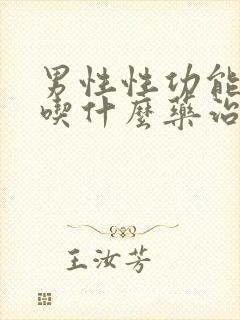 男性性功能
喫什麼藥治
王汝芳